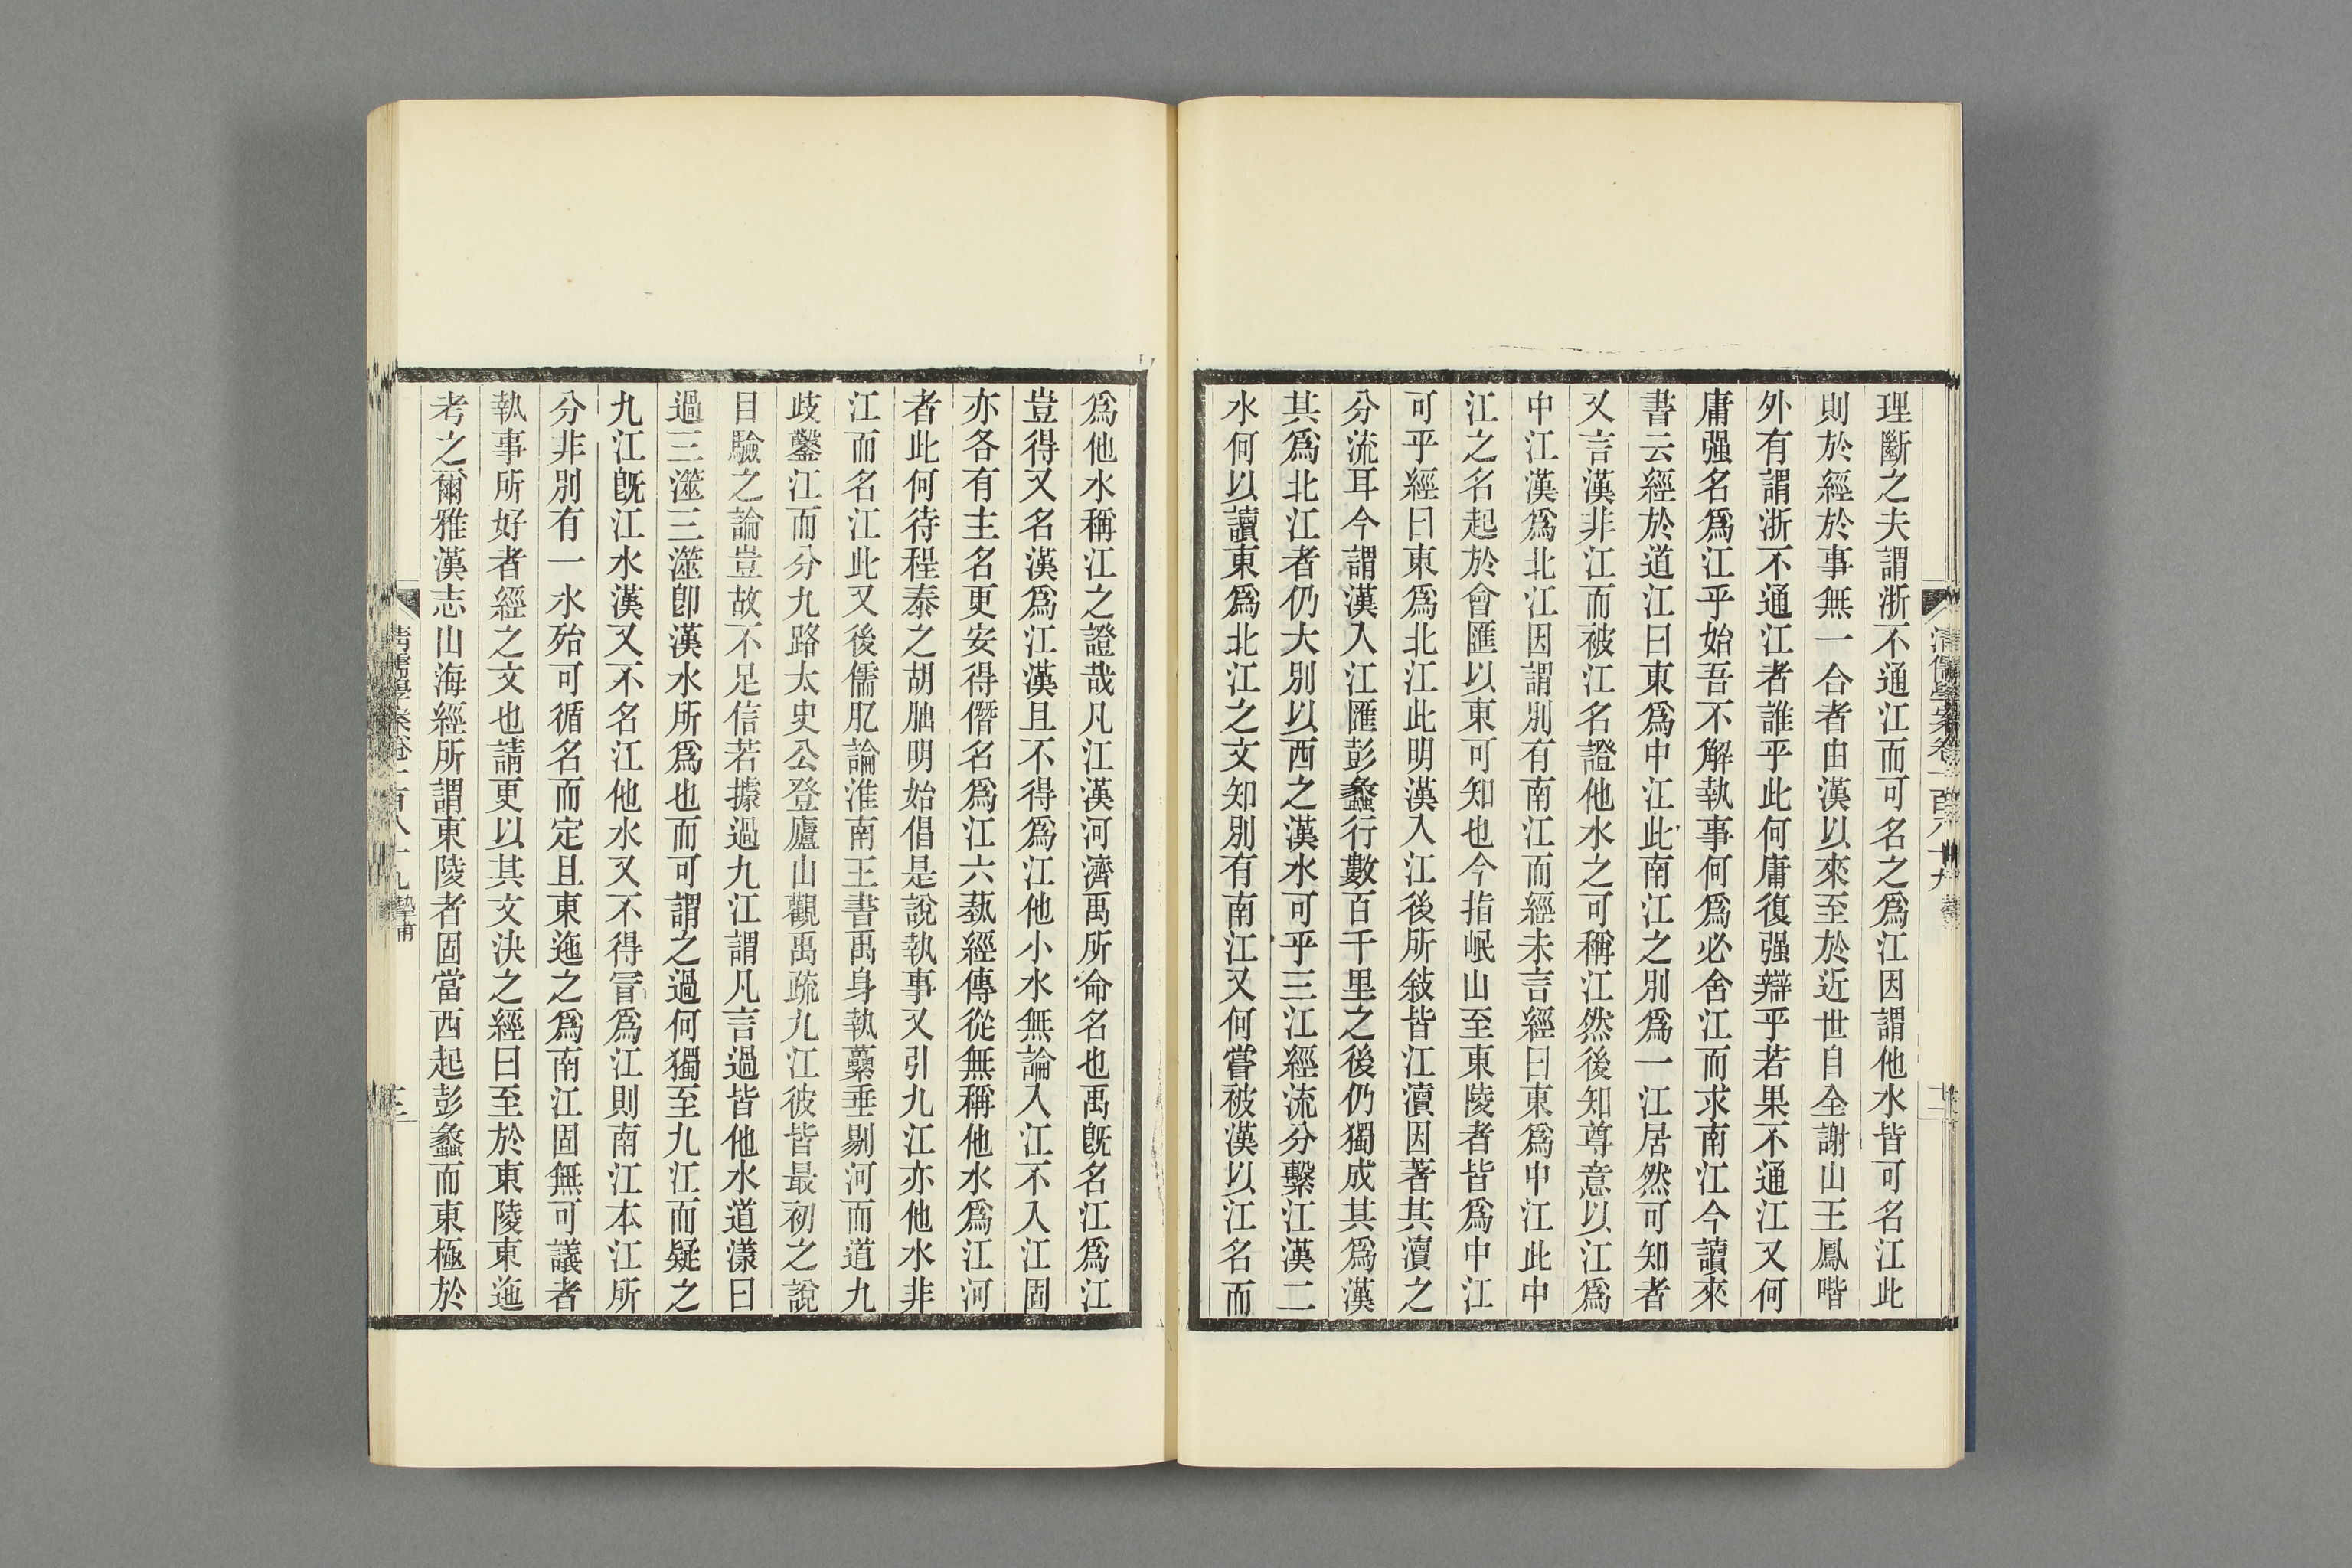 理斷之夫謂浙不通江而可名之爲江因謂他水皆可名江此
則於經於事無一合者由漢以來至於近世自全謝山王鳳喈
外有謂浙不通江者誰乎此何庸復强辯乎若果不通江又何
庸强名爲江乎始吾不解執事何爲必舍江而求南江今讀來
書云經於道江曰東爲中江此南江之別爲一江居然可知者
又言漢非江而被江名證他水之可稱江然後知尊意以江爲
中江漢爲北江因謂別有南江而經未言經曰東爲中江此中
江之名起於會匯以東可知也今指岷山至東陵者皆爲中江
可乎經曰東爲北江此明漢入江後所敍皆江瀆因著其瀆之
分流耳今謂漢入江匯彭蠡行數百千里之後仍獨成其爲漢
其爲北江者仍大別以西之漢水可乎三江經流分繫江漢二
水何以讀東爲北江之文知別有南江又何嘗被漢以江名而
爲他水稱江之證哉凡江漢河濟禹所命名也禹旣名江爲江
豈得又名漢爲江漢且不得爲江他小水無論入江不入江固
亦各有主名更安得僭名爲江六藝經傳從無稱他水爲江河
者此何待程泰之胡朏明始倡是說執事又引九江亦他水非
江而名江此又後儒肊論淮南王書禹身執虆垂剔河而道九
歧鑿江而分九路太史公登廬山觀禹疏九江彼皆最初之說
目驗之論豈故不足信若據過九江謂凡言過皆他水道漾曰
過三澨三澨卽漢水所爲也而可謂之過何獨至九江而疑之
九江旣江水漢又不名江他水又不得冒爲江則南江本江所
分非別有一水殆可循名而定且東迤之爲南江固無可議者
執事所好者經之文也請更以其文決之經曰至於東陵東迤
考之爾雅漢志山海經所謂東陵者固當西起彭蠡而東極於
清儒學案卷一百八十九 摯甫